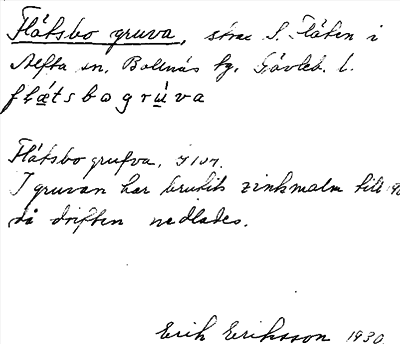 Flåtsbo gruva, söder S. Flåten i
Alfta sn. Bollnäs tg. Gävleb. l.
flǽtsbogrùva
Flåtsbo grufva.
I gruvan har brutits zinkmalm till
då driften nedlades.
Erik Eriksson 1930.